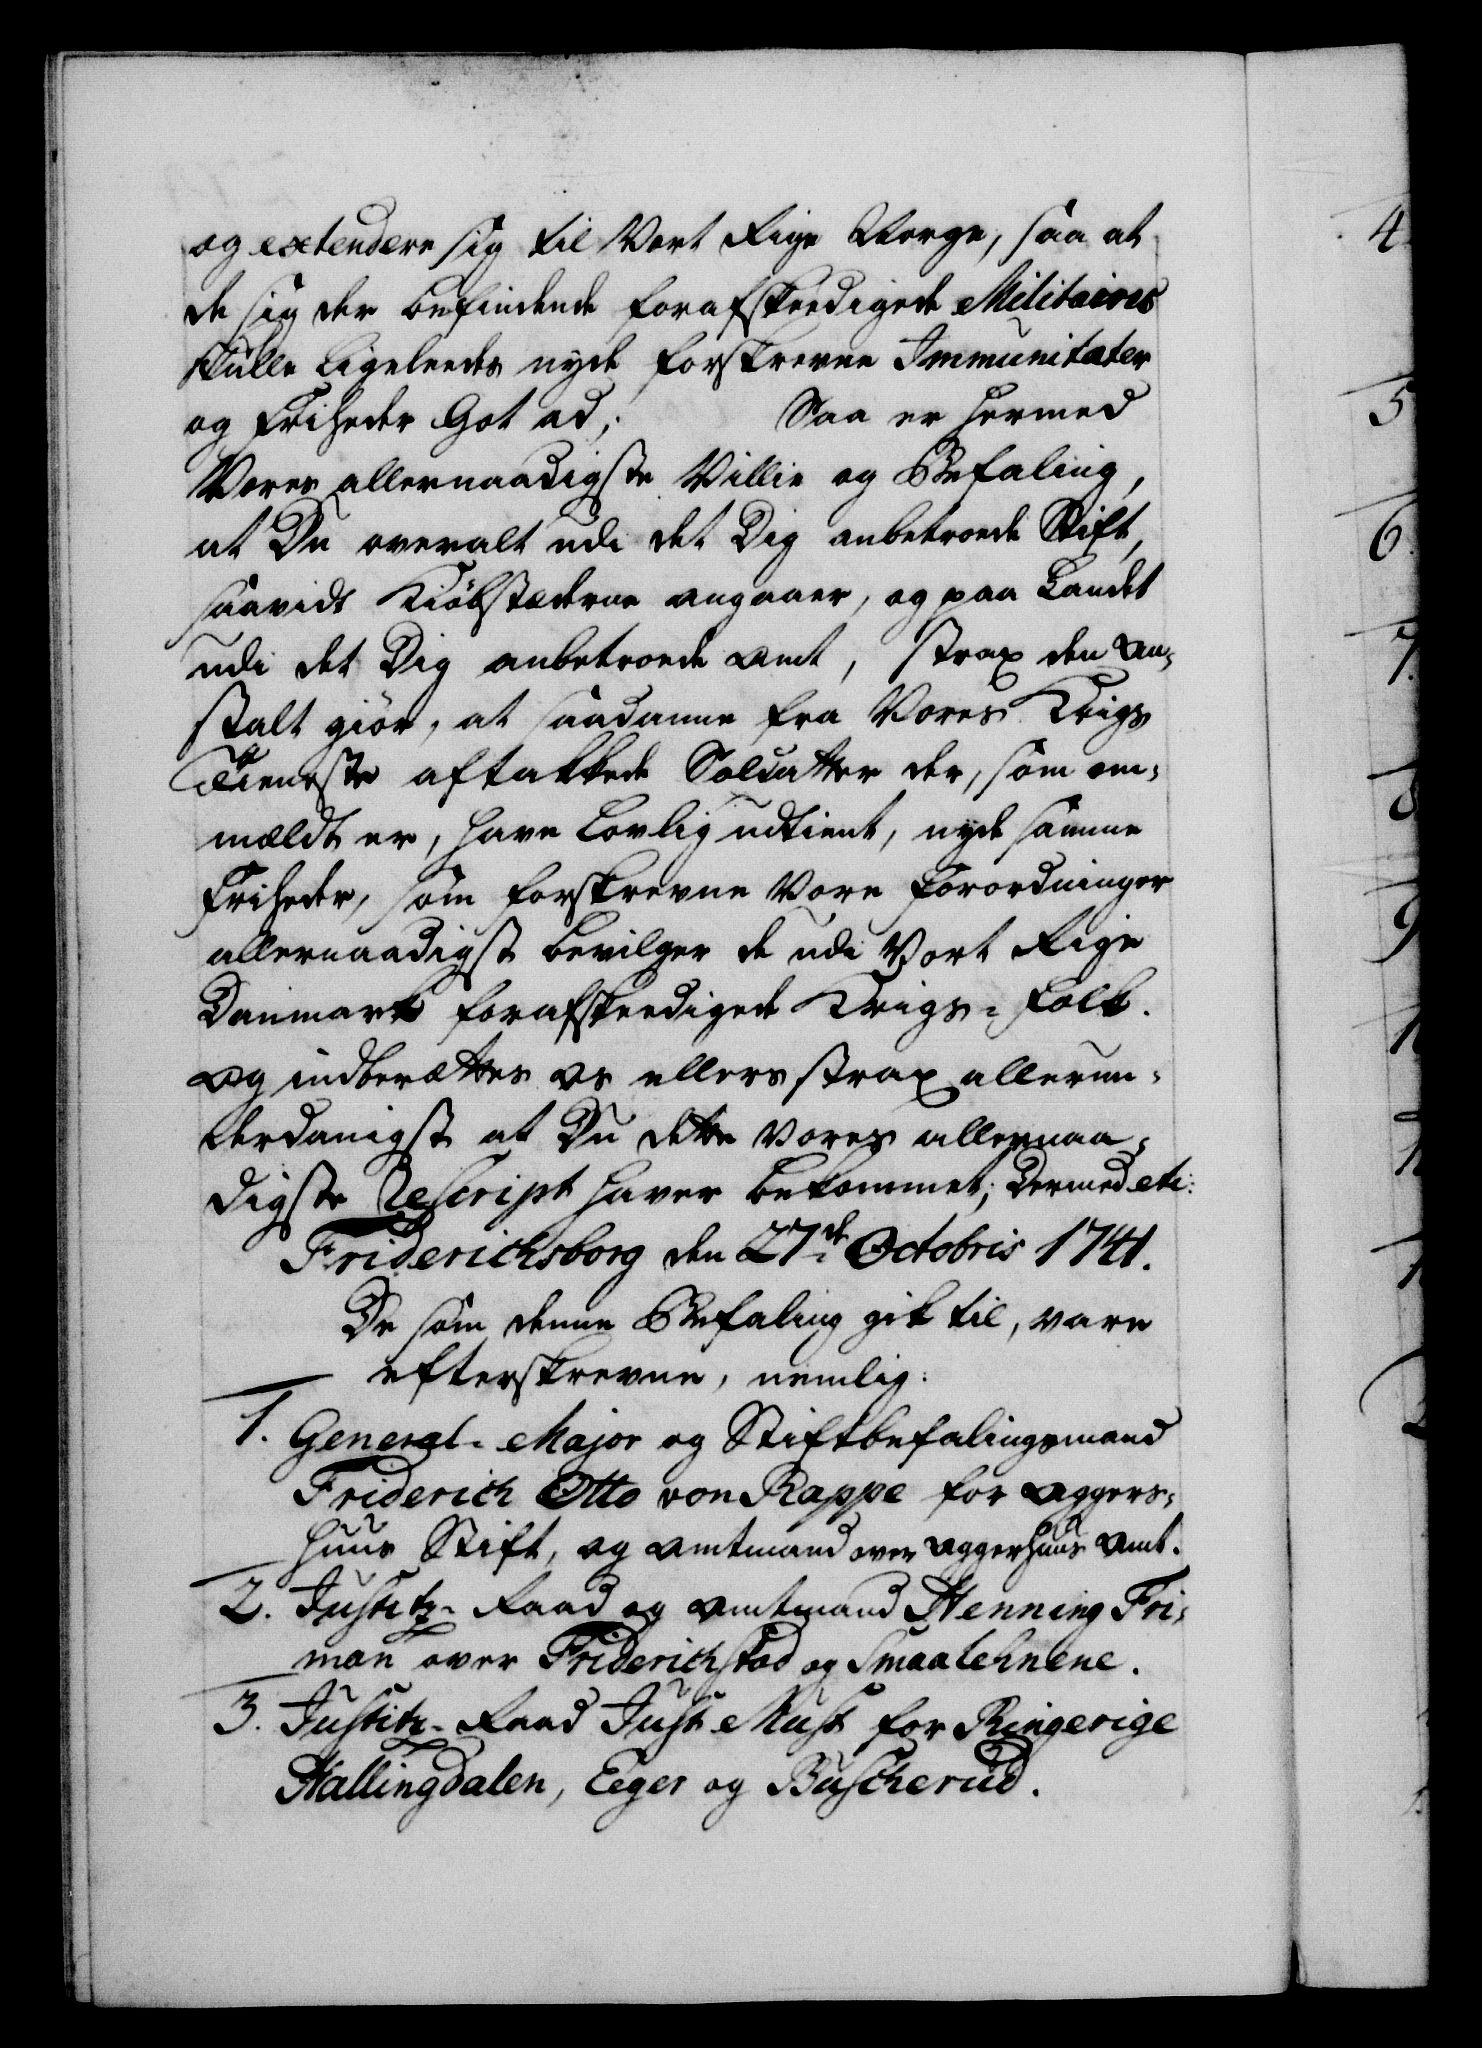 og extendere sig til Vort Rige Norge, saa at
de sig der befindende forafskeedigede Militaires
skulle ligeleedes nyde forskrevne Immunitæter
og Friheder Got ad; Saa er hermed
Vores allernaadigste Villie og Befaling,
at Du overalt udi det Dig anbetroede Stift,
saavidt Kiøbstæderne angaaer, og paa Landet
udi det Dig anbetroede Amt, strax den An-
stalt giør, at saadanne fra Vores Krigs
Tieneste aftakkede Soldatter der, som om-
mældt er, have Lovlig udtient, nyde samme
Friheder, som forskrevne Vore Forordninger
allernaadigst bevilger de udi Vort Rige
Danmark forafskeedigede Krigs-Folk.
Og indberættes os ellers strax allerun-
derdanigst at Du dette Vores allernaa-
digste Rescript haver bekommet; Dermed etc:
Friderichsborg den 27de Octobris 1741.
De som denne Befaling gik til, vare
efterskrevne, nemlig:
1. General-Major og Stiftbefalingsmand
Friderich Otto von Rappe for Aggers-
huus Stift, og Amtmand over Aggershuus Amt.
2. Justitz-Raad og Amtmand Henning Fri-
man over Friderichstad og Smaalehnene.
3. Justitz-Raad Just Must for Ringerige
Hallingdalen, Eeger og Buscherud.
4.
5
6.
7.
8
9